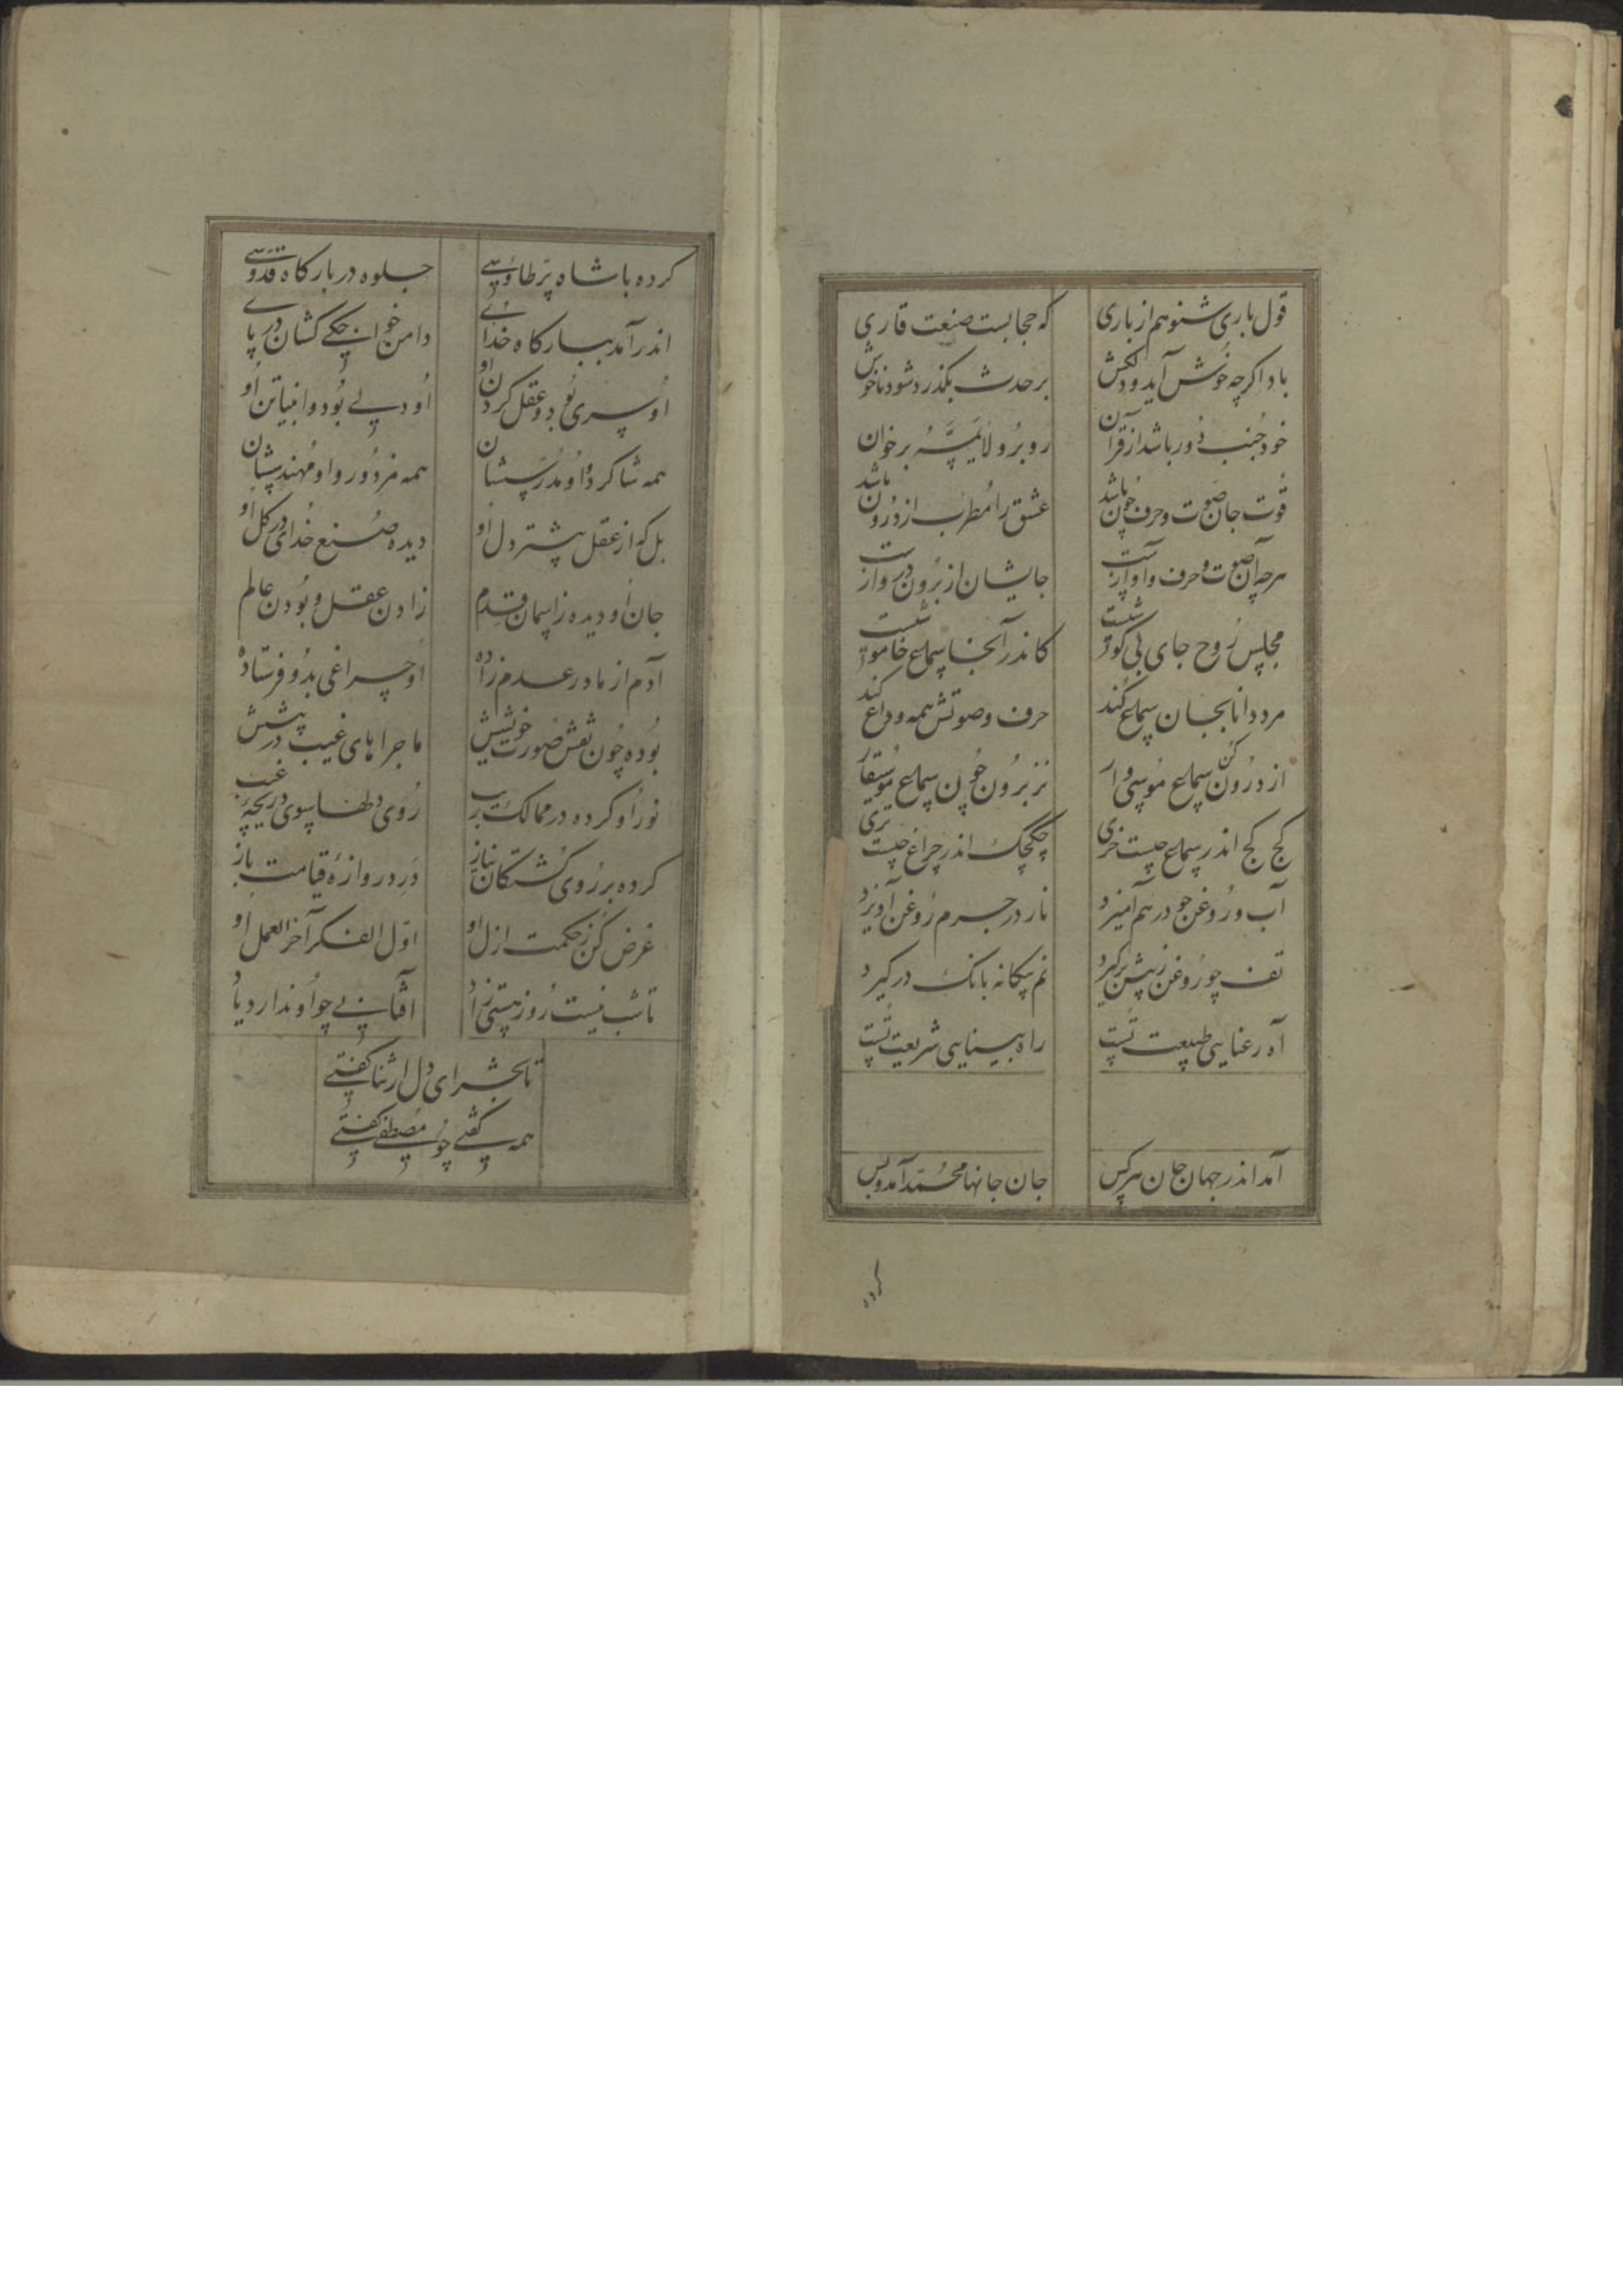 قول باری شنو هم از باری که حجابست صنعت قاری
باد اگر چه خوش آید و دلکش بر حدث بگذرد شود ناخوش
خود جنب دور باشد از قرآن رو برو لا یمسه برخوان
قوت جان صوت و حرف چون باشد عشق را مطرب از درون باشد
هر چه آن صوت و حرف و آوازست جایشان از برون دروازست
مجلس روح جای بی گوشیست کاندر آنجا سماع خاموشیست
مرد دانا بجان سماع کند حرف و صوتش همه وداع کند
از درون کن سماع موسی وار نز برون چون سماع موسیقار
کج کج اندر سماع چیست خری چکچک اندر چراغ چیست تری
آب و روغن چو درهم آمیزد نار در جرم روغن آویزد
تف چو روغن ز پیش برگیرد نم بیکانه بانک درگیرد
آه رعنایی طبیعت تست راه بینایی شریعت تست
آمد اندر جهان جان هر کس جان جانها محمد آمد و بس
کرده
کرده با شاه پر طاوسی جلوه در بارکاه قدوسی
اندر آمد ببارکاه خدای دامن خواجکی کشان در پای
او سری بود و عقل گردن او او دلی بود و انبیا تن او
همه شاکرد و او مدرسشان همه مزدور و او مهندسشان
بل که از عقل پیشتر دل او دیده صنع خدای در کل او
جان او دیده ز آسمان قدم زادن عقل و بودن عالم
آدم از مادر عدم زاده او چراغی بدو فرستاده
بوده چون نقش صورت خویشش ماجراهای غیب در پیشش
نور او کرده در ممالک رب روی دلها بسوی دریچه غیب
کرده بر روی کشتکان نیاز در دروازه قیامت باز
غرض کن ز حکمت ازل او اول الفکر آخر العمل او
تا شب نیست روز هستی زاد آفتابی چو او ندارد یاد
تا بحشر ای دل ار ثنا گفتی
همه گفتی چو مصطفی گفتی